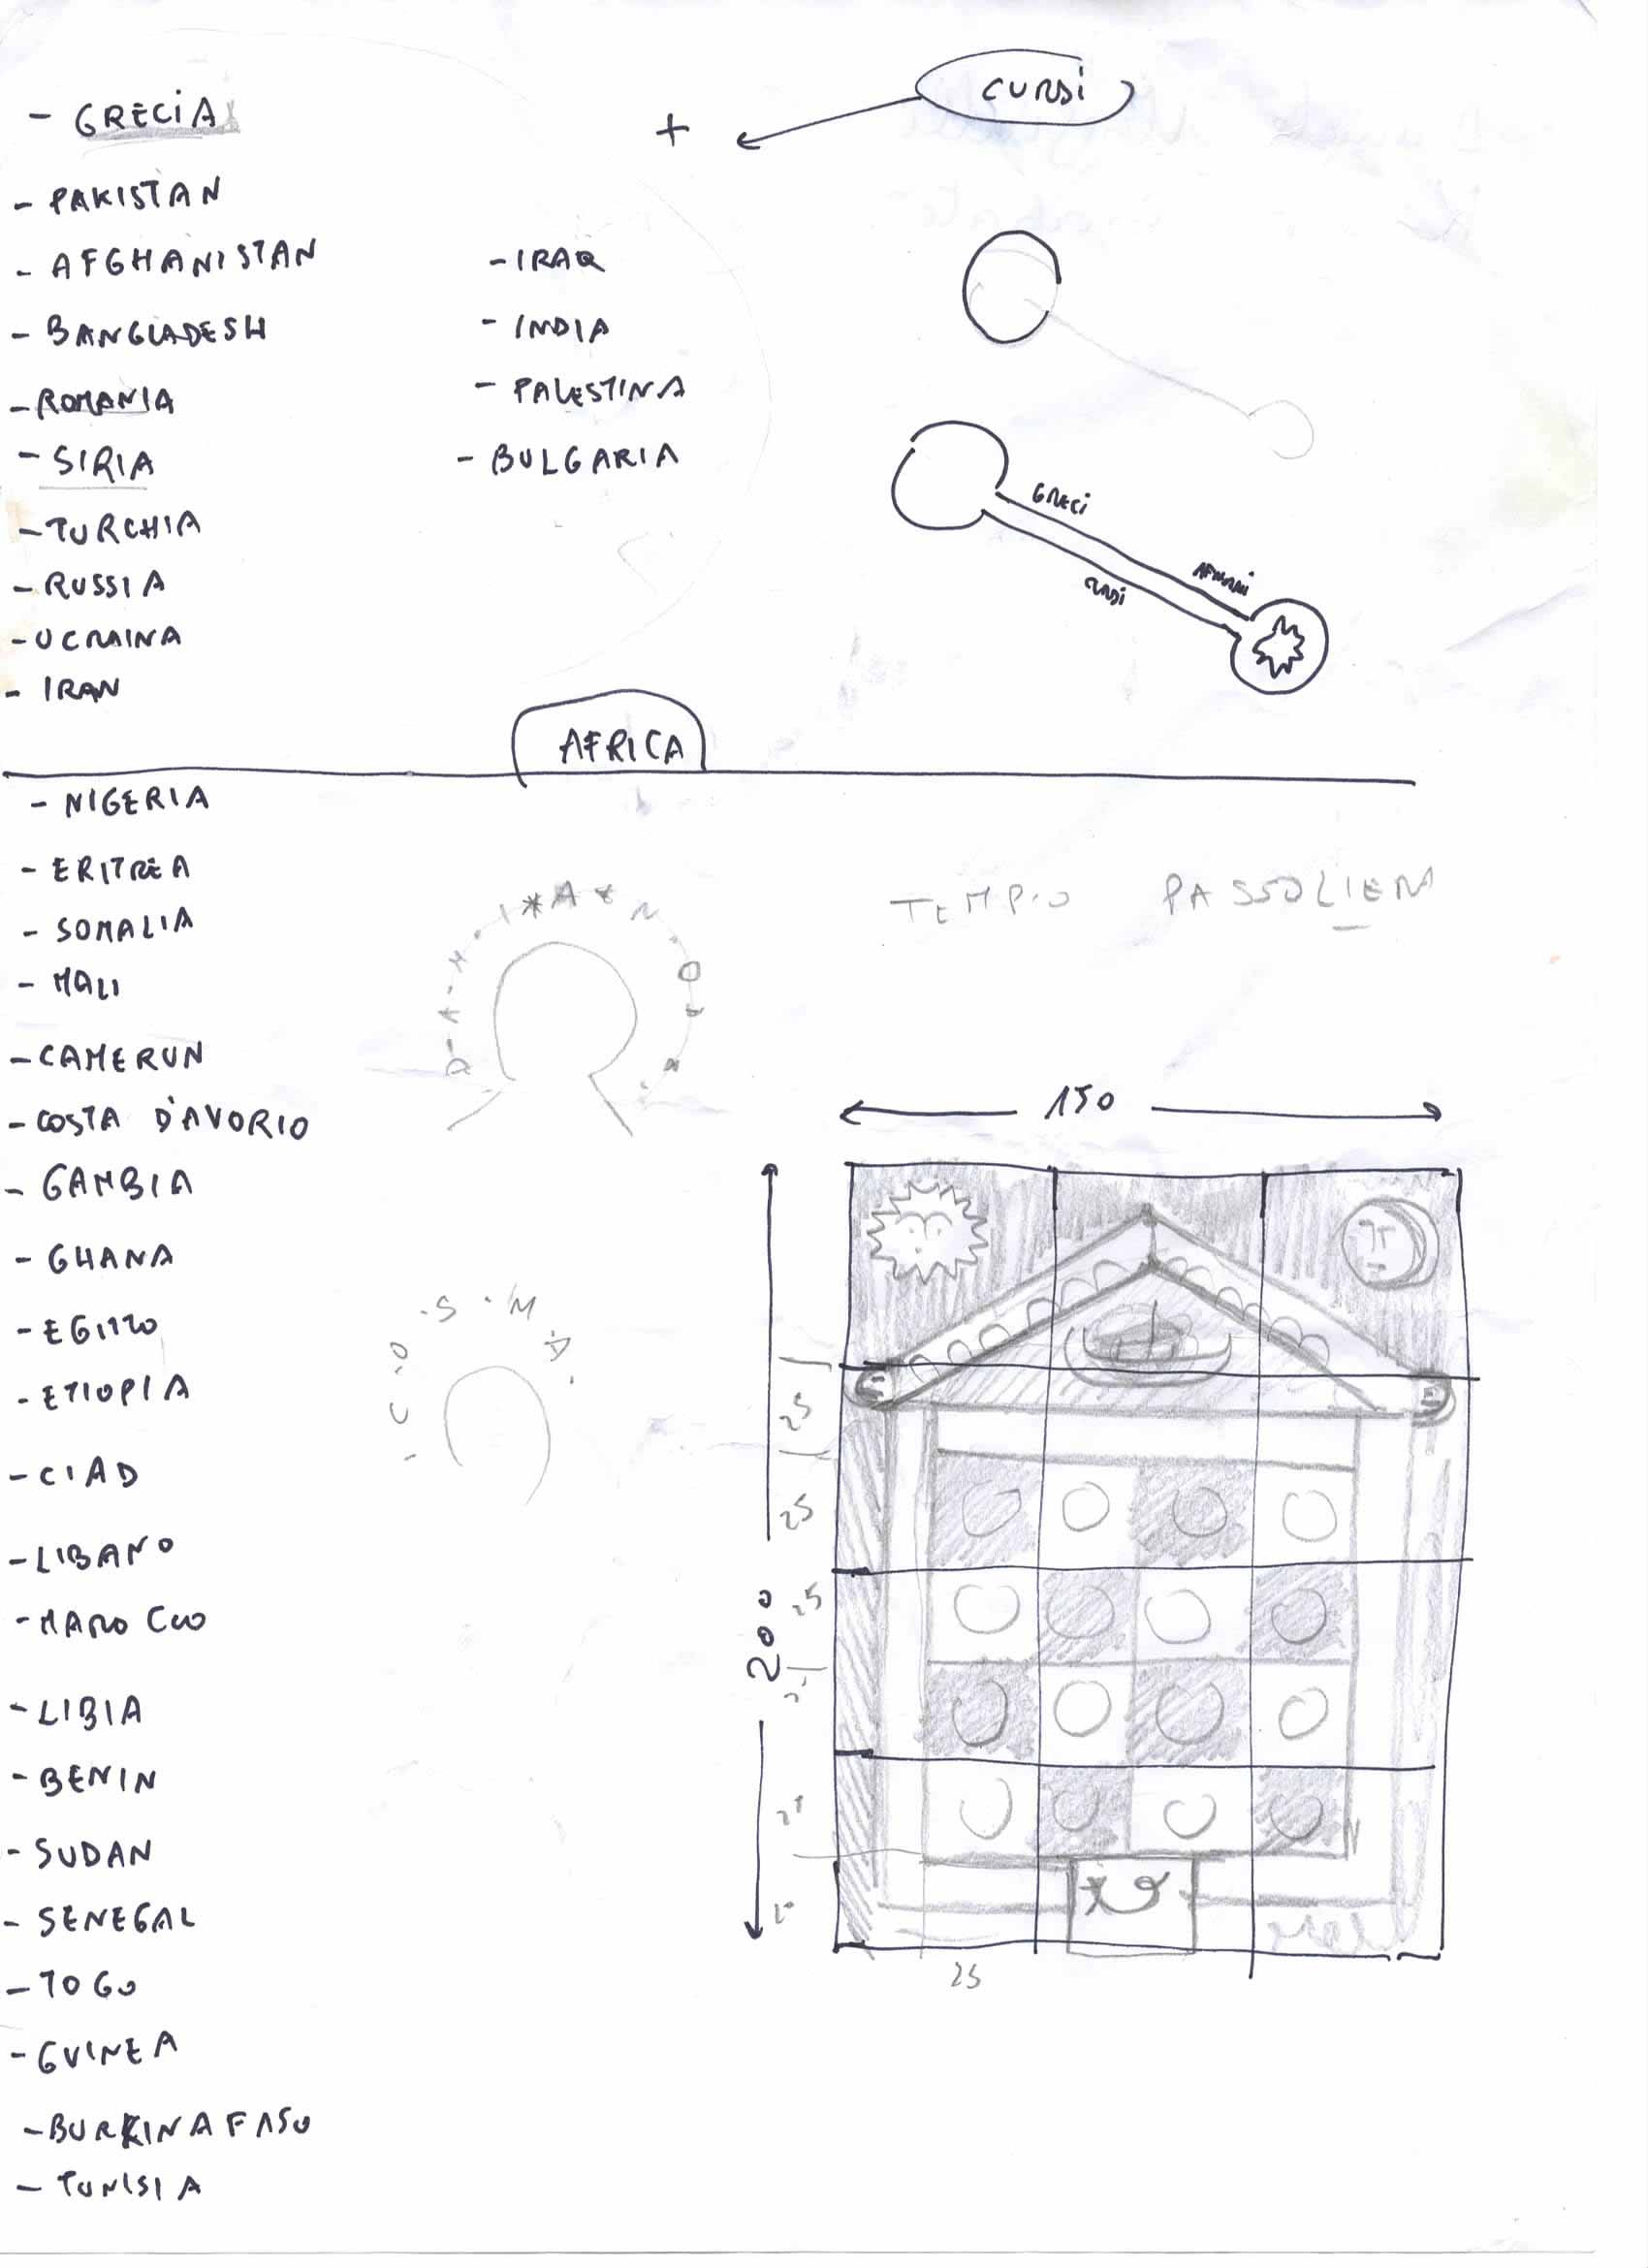 - GRECIA
+
CURDI
- PAKISTAN
- AFGHANISTAN
- BANGLADESH
- ROMANIA
- SIRIA
- TURCHIA
- RUSSIA
- UCRAINA
- IRAN
- IRAQ
- INDIA
- PALESTINA
- BULGARIA
GRECI
CURDI
AFRICA
- NIGERIA
- ERITREA
- SOMALIA
- MALI
- CAMERUN
- COSTA D'AVORIO
- GAMBIA
- GHANA
- EGITTO
- ETIOPIA
- CIAD
- LIBANO
- MAROCCO
- LIBIA
- BENIN
- SUDAN
- SENEGAL
- TOGO
- GUINEA
- BURKINA FASO
- TUNISIA
TEMPIO
.C.O.S.M.A.
150
200
25
25
25
25